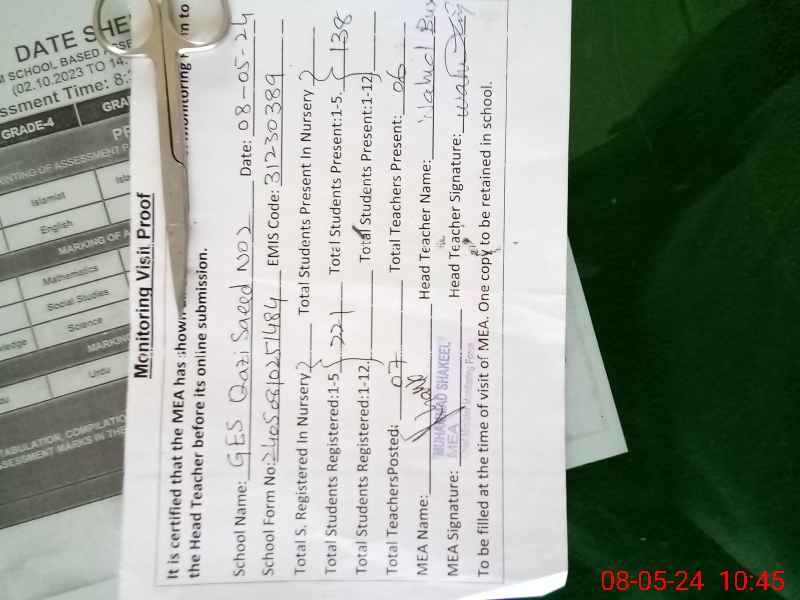 DATE SHE
M SCHOOL BASED ASSE
(02.10.2023 TO 14.
ssment Time: 8:
GRADE-4 GRA
PR
INTING OF ASSESSMENT P
Islamiat Isla
English
MARKING OF A
Mathematics
Social Studies
wledge Science
MARKIN
Urdu
TABULATION, COMPILATIO
ASSESSMENT MARKS IN THE
Monitoring Visit Proof
It is certified that the MEA has shown monitoring to
the Head Teacher before its online submission.
School Name: GES Qazi Saeed NO2 Date: 08-05-24
School Form No: 24050810251484 EMIS Code: 31230389
Total S. Registered In Nursery Total Students Present In Nursery
Total Students Registered:1-5 221 Total Students Present:1-5. 138
Total Students Registered:1-12. Total Students Present:1-12
Total TeachersPosted: 07 Total Teachers Present: 06
MEA Name: Head Teacher Name: Wahid Bux
MUHAMMAD SHAKEEL
MEA
MEA Signature: Head Teacher Signature:
To be filled at the time of visit of MEA. One copy to be retained in school.
08-05-24 10:45